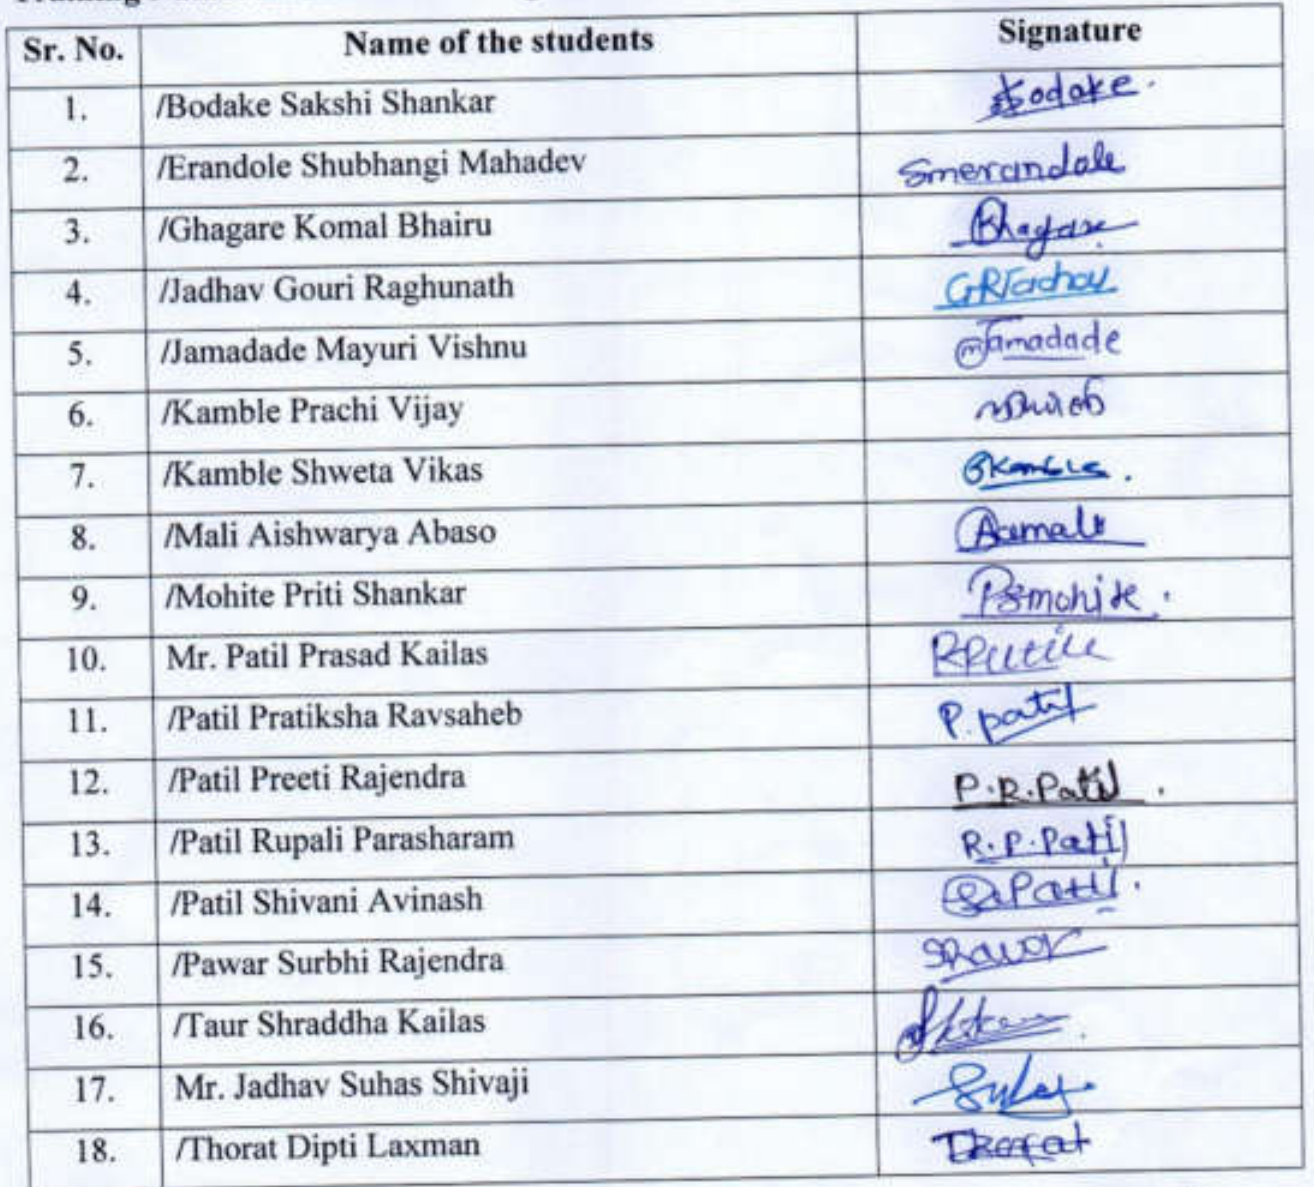 Sr. No. Name of the students Signature
1. /Bodake Sakshi Shankar Bodake.
2. /Erandole Shubhangi Mahadev Smerandole
3. /Ghagare Komal Bhairu
4. /Jadhav Gouri Raghunath GRJadhav
5. /Jamadade Mayuri Vishnu mJamadade
6. /Kamble Prachi Vijay
7. /Kamble Shweta Vikas SKamble.
8. /Mali Aishwarya Abaso Aamali
9. /Mohite Priti Shankar PSmohite.
10. Mr. Patil Prasad Kailas
11. /Patil Pratiksha Ravsaheb P. patil
12. /Patil Preeti Rajendra P.R.Patil.
13. /Patil Rupali Parasharam R.P.Patil
14. /Patil Shivani Avinash SaPatil.
15. /Pawar Surbhi Rajendra
16. /Taur Shraddha Kailas
17. Mr. Jadhav Suhas Shivaji Suhas
18. /Thorat Dipti Laxman